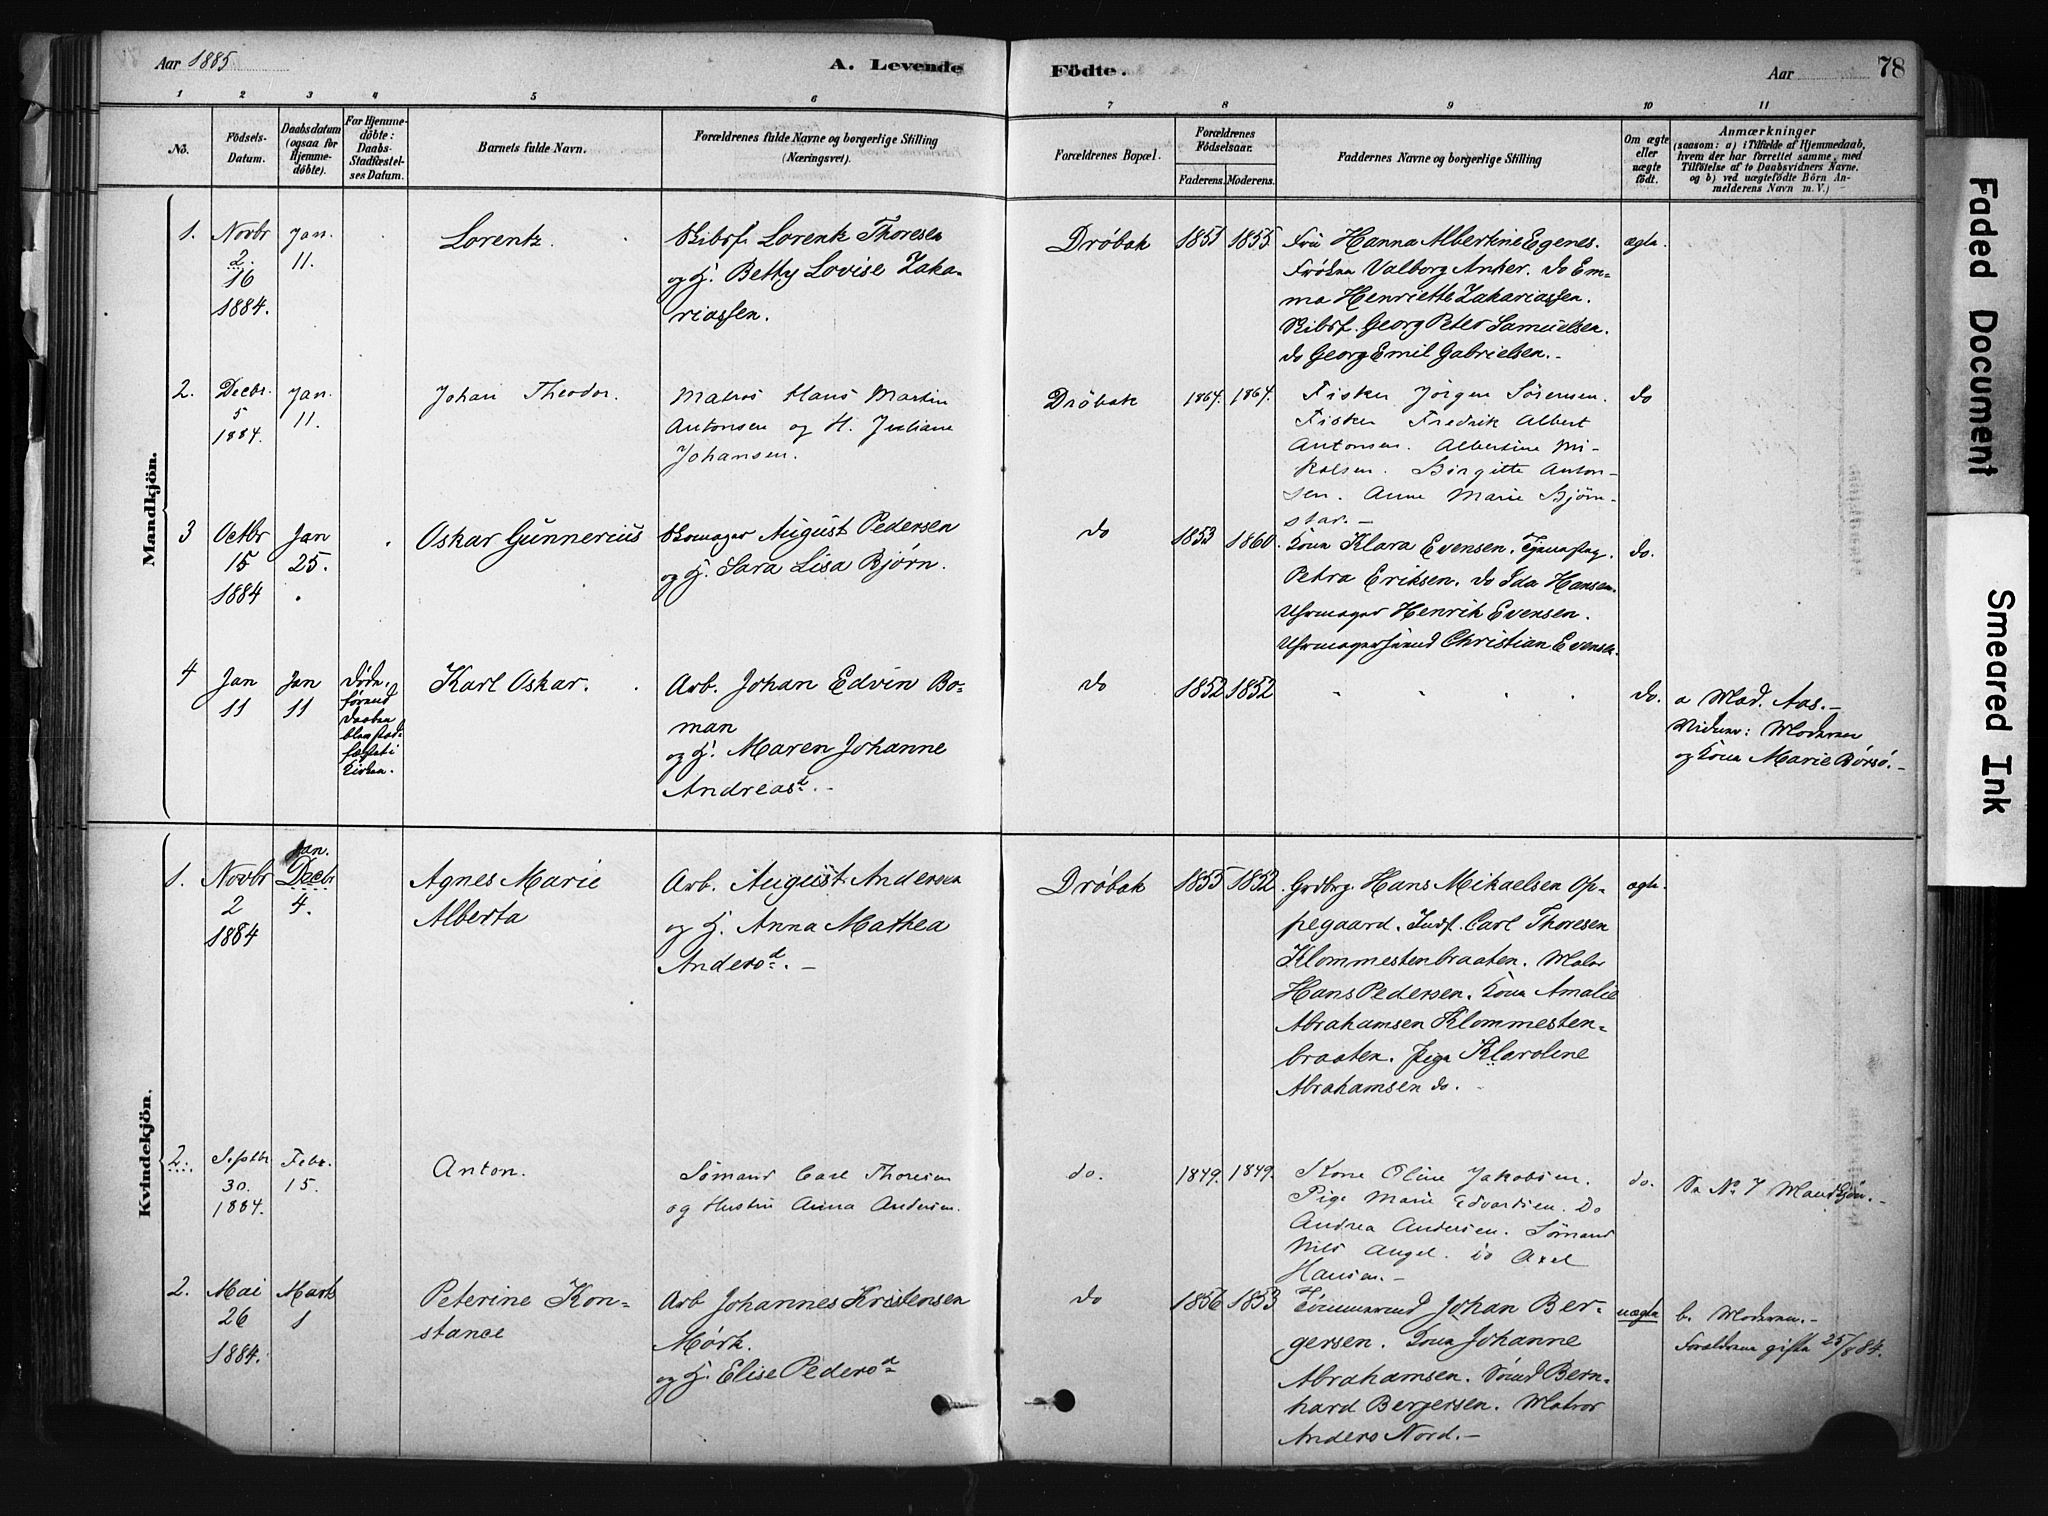 Aar 1885
A. Levende Födte.
Aar 78
1 2 3 4 5 6 7 8 9 10 11
No.
Födsels-Datum.
Daabsdatum (ogsaa for Hjemmedöbte).
For Hjemmedöbte: Daabs-Stadfæstelses Datum.
Barnets fulde Navn.
Forældrenes fulde Navne og borgerlige Stilling (Næringsvei).
Forældrenes Bopæl.
Forældrenes Födselsaar.
Faderens. Moderens.
Faddernes Navne og borgerlige Stilling
Om ægte eller uægte födt.
Anmærkninger
(saasom: a) i Tilfælde af Hjemmedaab,
hvem der har forrettet samme, med
Tilföielse af to Daabsvidners Navne,
og b) ved uægtefödte Börn An-
melderens Navn m. V.)
Mandkjön.
1. Novbr 2. 16 1884. Jan. 11.
Lorentz.
Skibsf. Lorentz Thoresen
og H. Betty Lovise Zaka-
riassen.
Drøbak 1851 1855
Fru Hanna Albertine Egenes.
Frøken Valborg Anker. do Em-
ma Henriette Zakariassen.
Skibsf. Georg Peter Samuelsen.
do Georg Emil Gabrielsen.-
ægte.
2. Decbr. 5 1884. Jan. 11.
Johan Theodor.
Matros Hans Martin
Antonsen og H. Juliane
Johansen.
Drøbak 1864. 1864.
Fisker Jörgen Sörensen.
Fisker Fredrik Albert
Antonsen. Albertine Mi-
kalsen. Birgitte Anton-
sen. Anne Marie Bjørn-
star.-
do
3 Octbr 15 1884 Jan 25.
Oskar Gunnerius
Skomager August Pedersen
og H. Sara Lisa Bjørn.
do 1853 1860.
Kone Klara Evensen. Tjenestpg.
Petra Eriksen. do Ida Hansen.
Uhrmager Henrik Evensen.
Uhrmagersvend Christian Evensen.
do.
4 Jan 11 Jan 11
Døde
førend
Daaben
blev stad-
fæstet i
Kirken.
Karl Oskar.
Arb. Johan Edvin Bo-
man
og H. Maren Johanne
Andreasd.-
do 1852 1852 do.
a Mad. Aas.-
Vidner: Moderen
og Kone Marie Børsø.-
Kvindekjön.
1. Novbr 2 1884 Jan. Decbr 4.
Agnes Marie
Alberta
Arb. August Andersen
og H. Anna Mathea
Andersd.-
Drøbak 1855 1852.
Grdbrg. Hans Mikaelsen Op-
pegaard. Indst. Carl Thoresen
Klommestenbraaten. Maler
Hans Pedersen. Kone Amalie
Abrahamsen Klommesten-
braaten. Pige Klaroline
Abrahamsen do.
ægte.
2. Septbr 30. 1884. Febr. 15.
Anton.
Sømand Carl Thoresen
og Hustru Anna Andersen.
do. 1849. 1849.
Kone Oline Jakobsen.
Pige Marie Edvardsen. Do
Andrea Andersen. Sømand
Nils Angel. do Axel
Hansen.-
do.
Se No 7 Mandkjön.-
2. Mai 26 1884. Marts 1
Peterine Kon-
stance
Arb Johannes Kristensen
Mørk.
og H. Elise Pedersd
do 1856 1853
Tømmermd Johan Ber-
gersen. Kone Johanne
Abrahamsen. Sømd Bern-
hard Bergersen. Matros
Anders Nord.-
uægte
b. Moderen.-
Forældrene gifte 25/8 84.
Faded Document
Smeared Ink